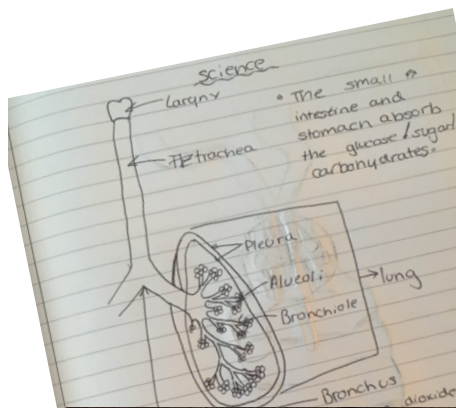 science
Larynx
• The small
intestine and
stomach absorb
the glucose/sugar/
carbohydrates.
trachea
Pleura
Alveoli
lung
Bronchiole
Bronchus
dioxide